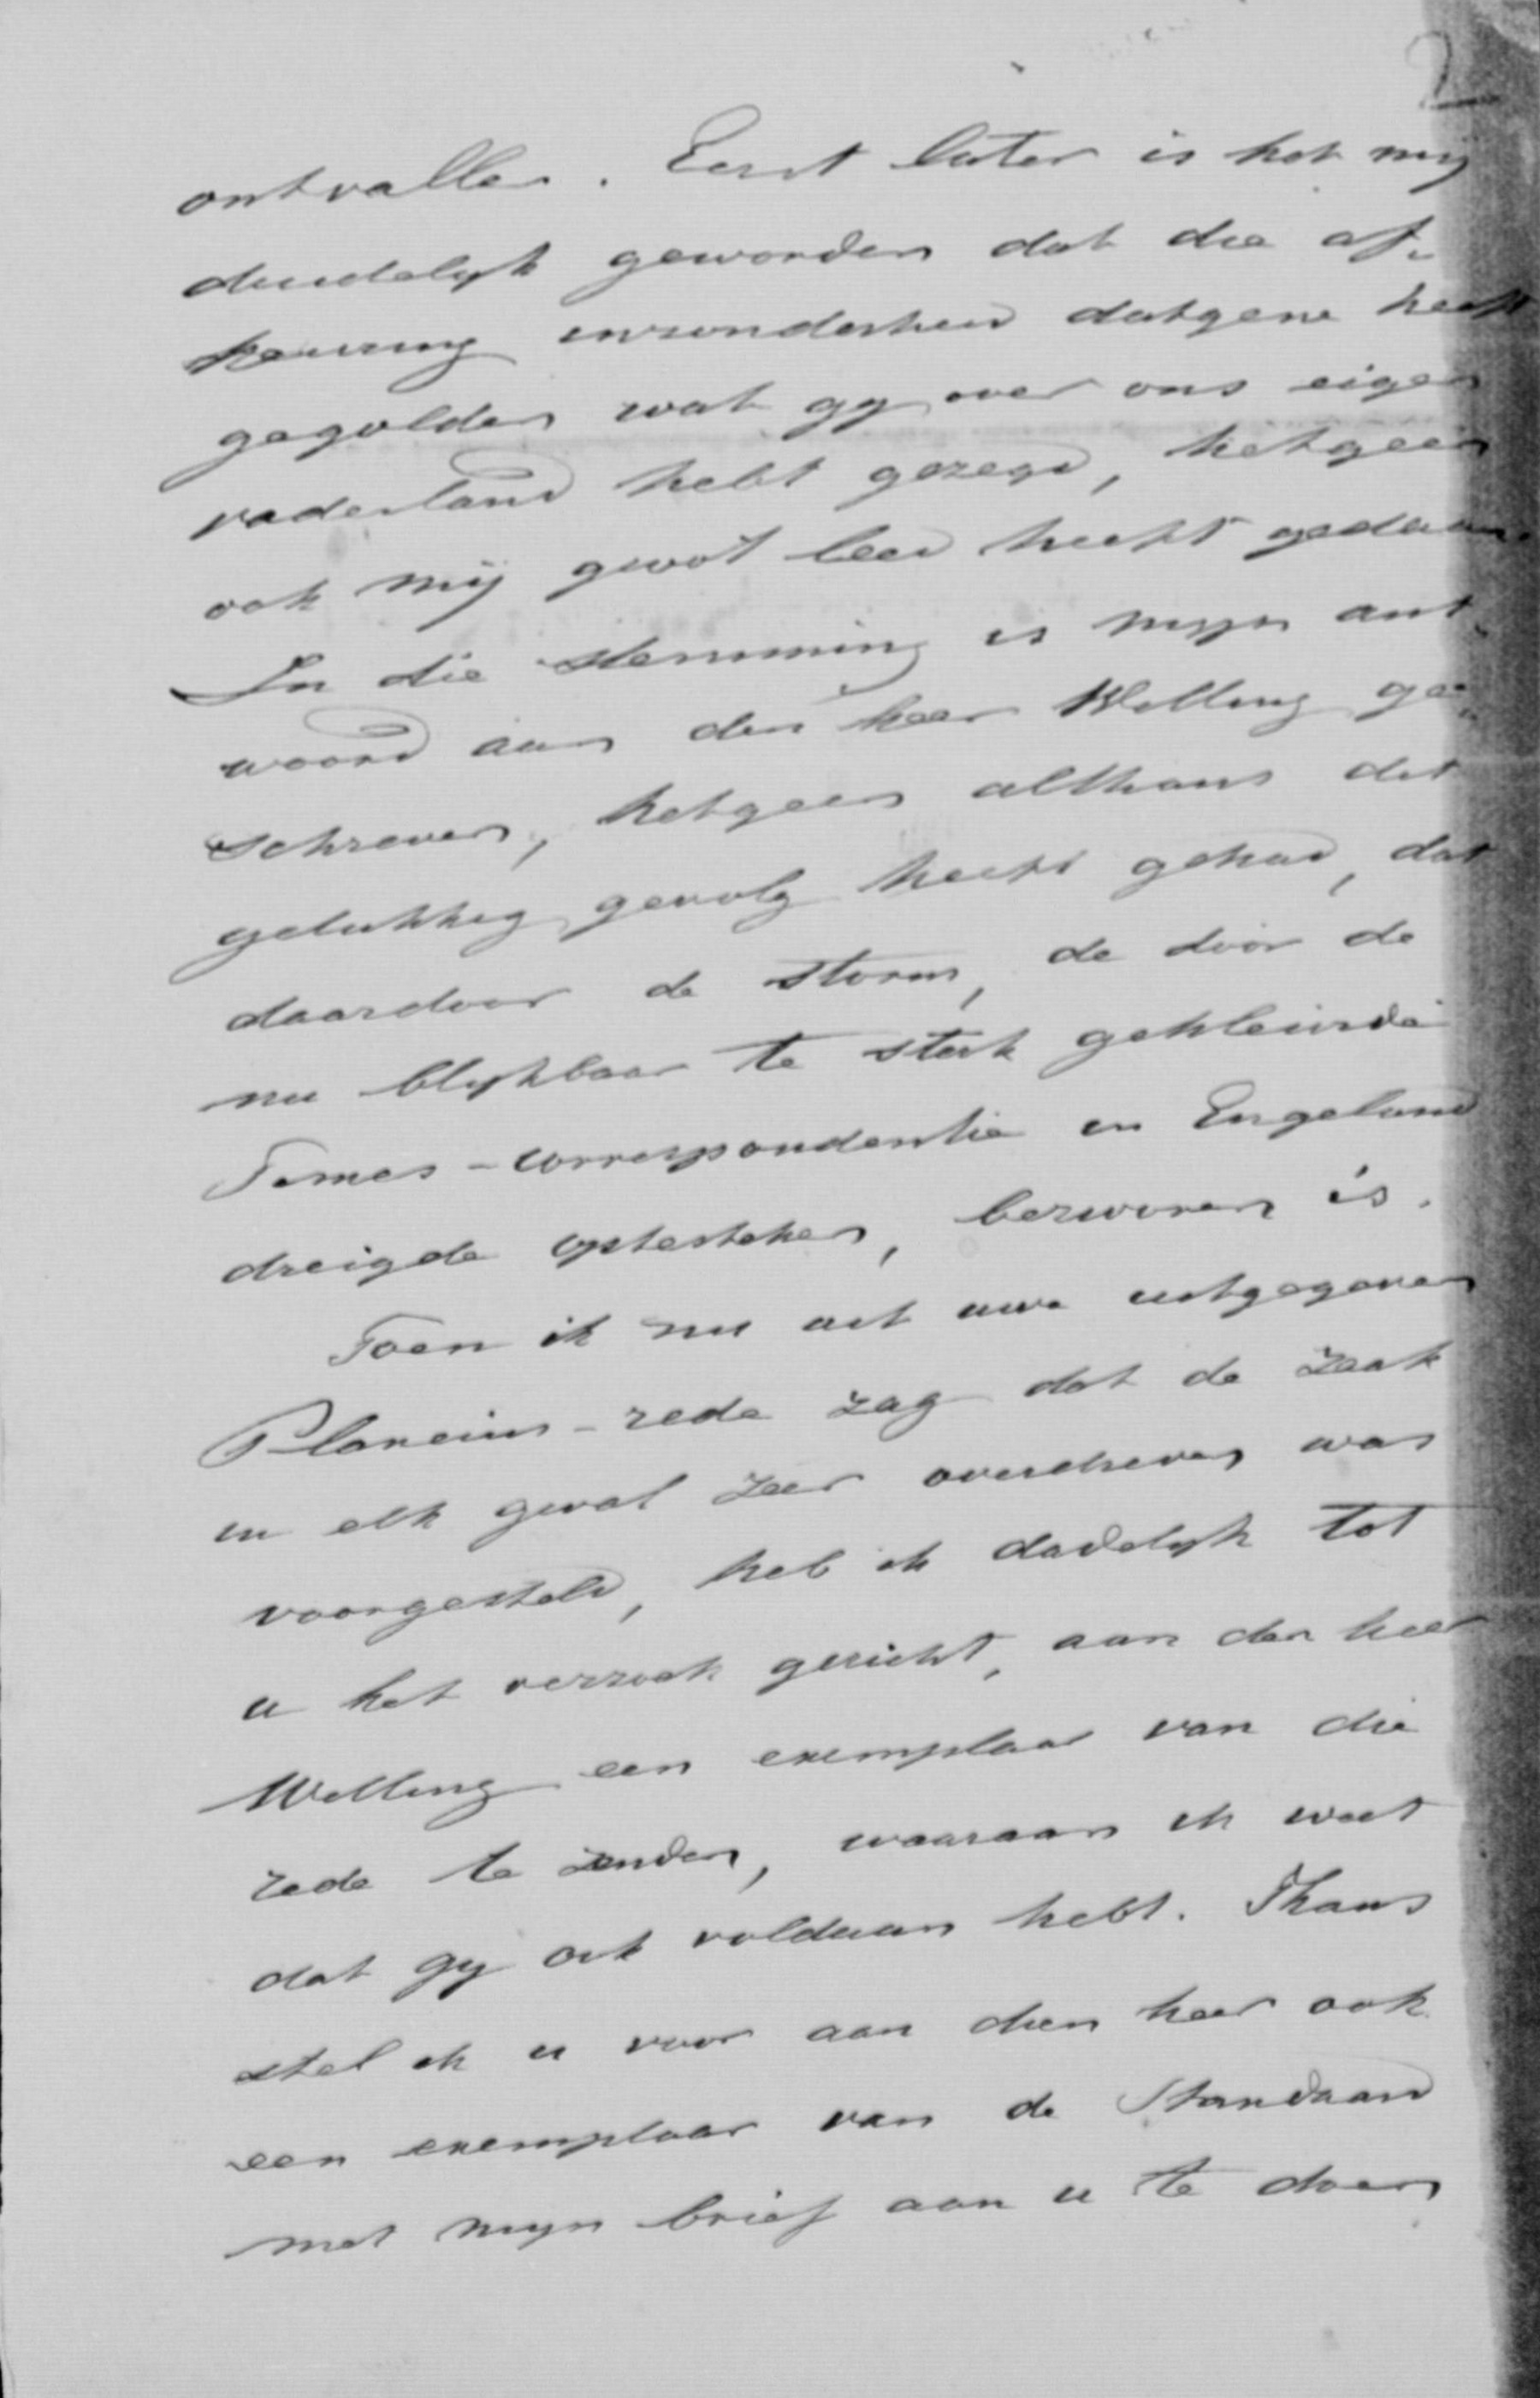 2
ontvallen. Eerst later is het mij
duidelijk geworden dat die af-
keuring inzonderheid datgene heeft
gegolden wat gij over ons eigen
vaderland hebt gezegd, hetgeen
ook mij groot leed heeft gedaan.
In die stemming is mijn ant-
woord aan den heer Willing ge-
schreven, hetgeen althans dit
gelukkig gevolg heeft gehad, dat
daardoor de storm, de door de
nu blijkbaar te sterk gekleurde
Times-correspondentie in Engeland
dreigde optesteken, bezworen is.
Toen ik nu uit uwe uitgegeven
Plancius-rede zag dat de zaak
in elk geval zeer overdreven was
voorgesteld, heb ik dadelijk tot
u het verzoek gericht, aan den heer
Willing een exemplaar van die
rede te zenden, waaraan ik weet
dat gij ook voldaan hebt. Thans
stel ik u voor aan dien heer ook
een exemplaar van de Standaard
met mijn brief aan u te doen